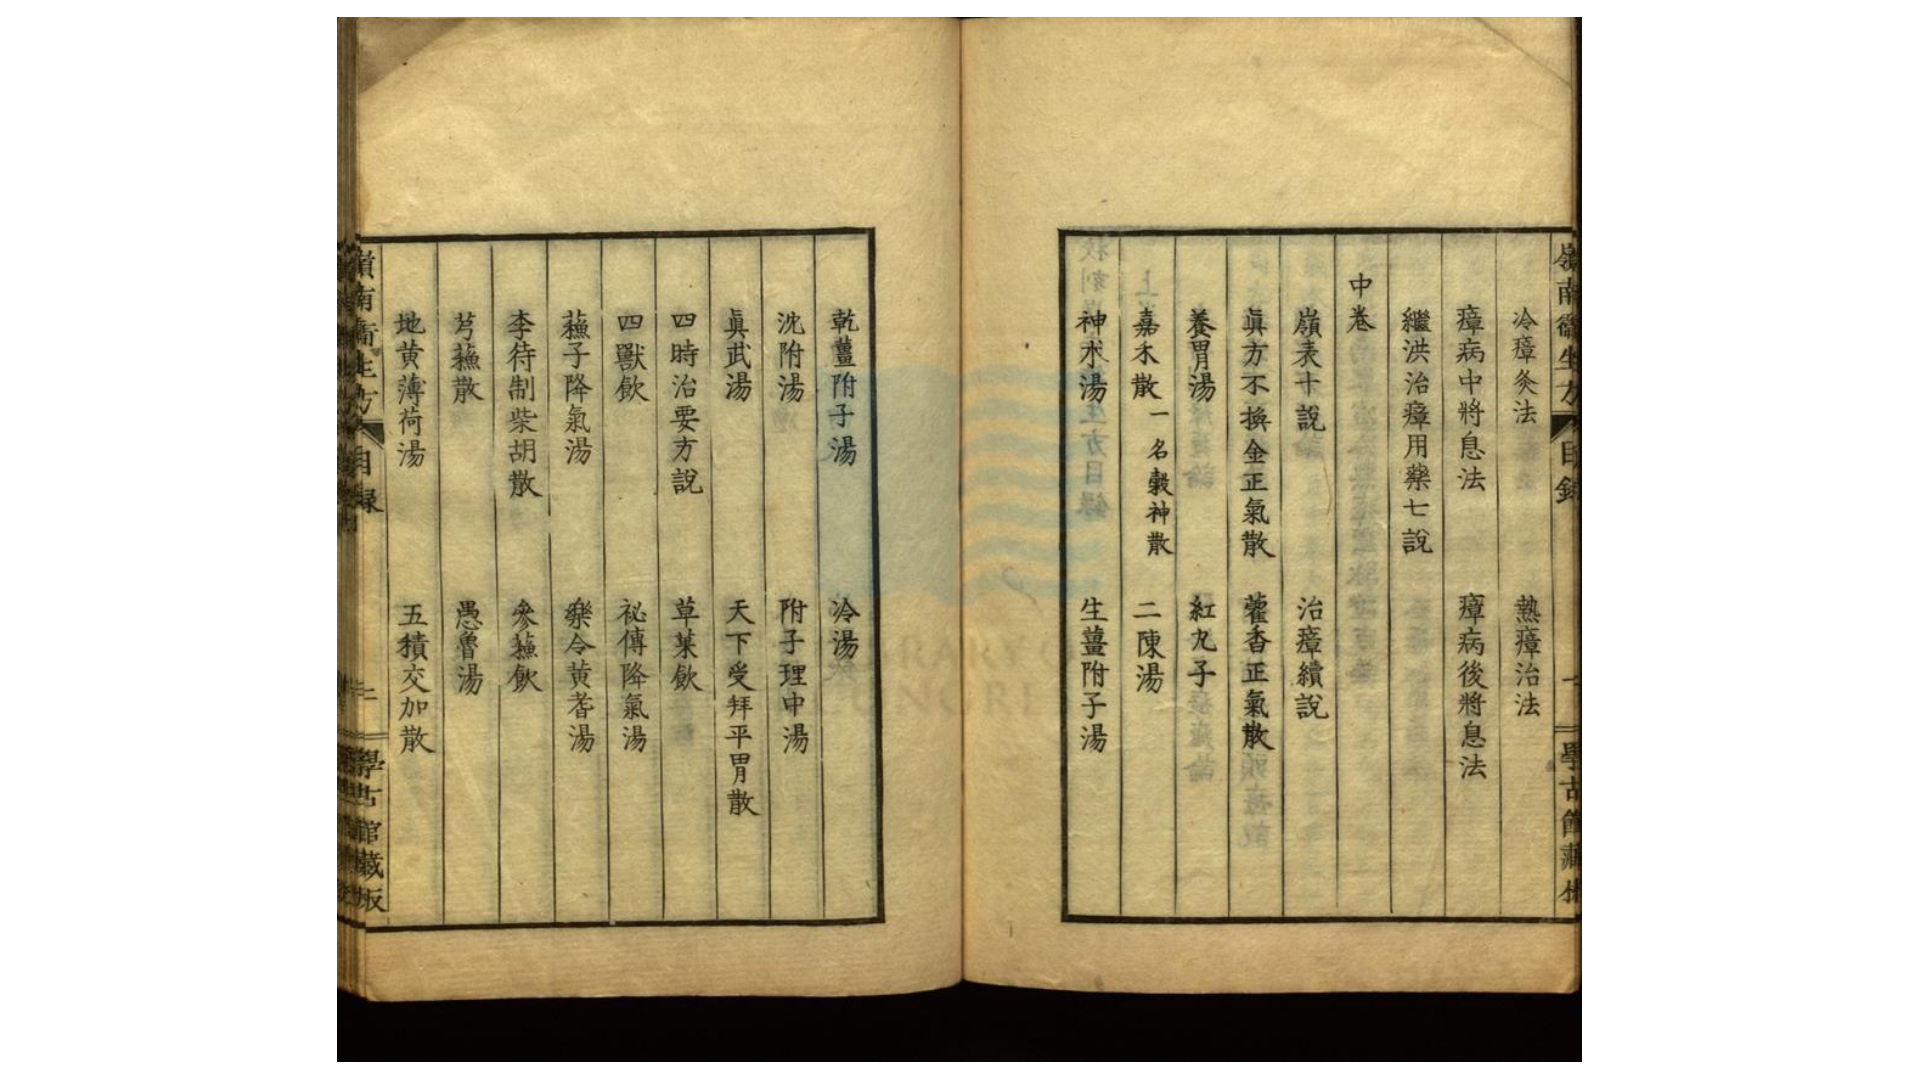 嶺南衞生方 目錄 一 學古館藏板
冷瘴灸法 熱瘴治法
瘴病中將息法 瘴病後將息法
繼洪治瘴用藥七說
中卷
嶺表十說 治瘴續說
眞方不換金正氣散 藿香正氣散
養胃湯 紅丸子
嘉禾散 一名穀神散 二陳湯
神朮湯 生薑附子湯
乾薑附子湯 冷湯
沈附湯 附子理中湯
眞武湯 天下受拜平胃散
四時治要方說 草菓飲
四獸飲 祕傳降氣湯
蘓子降氣湯 樂令黃芪湯
李待制柴胡散 參蘓飲
芎蘓散 愚魯湯
地黃薄荷湯 五積交加散
嶺南衞生方 目錄 二 學古館藏板